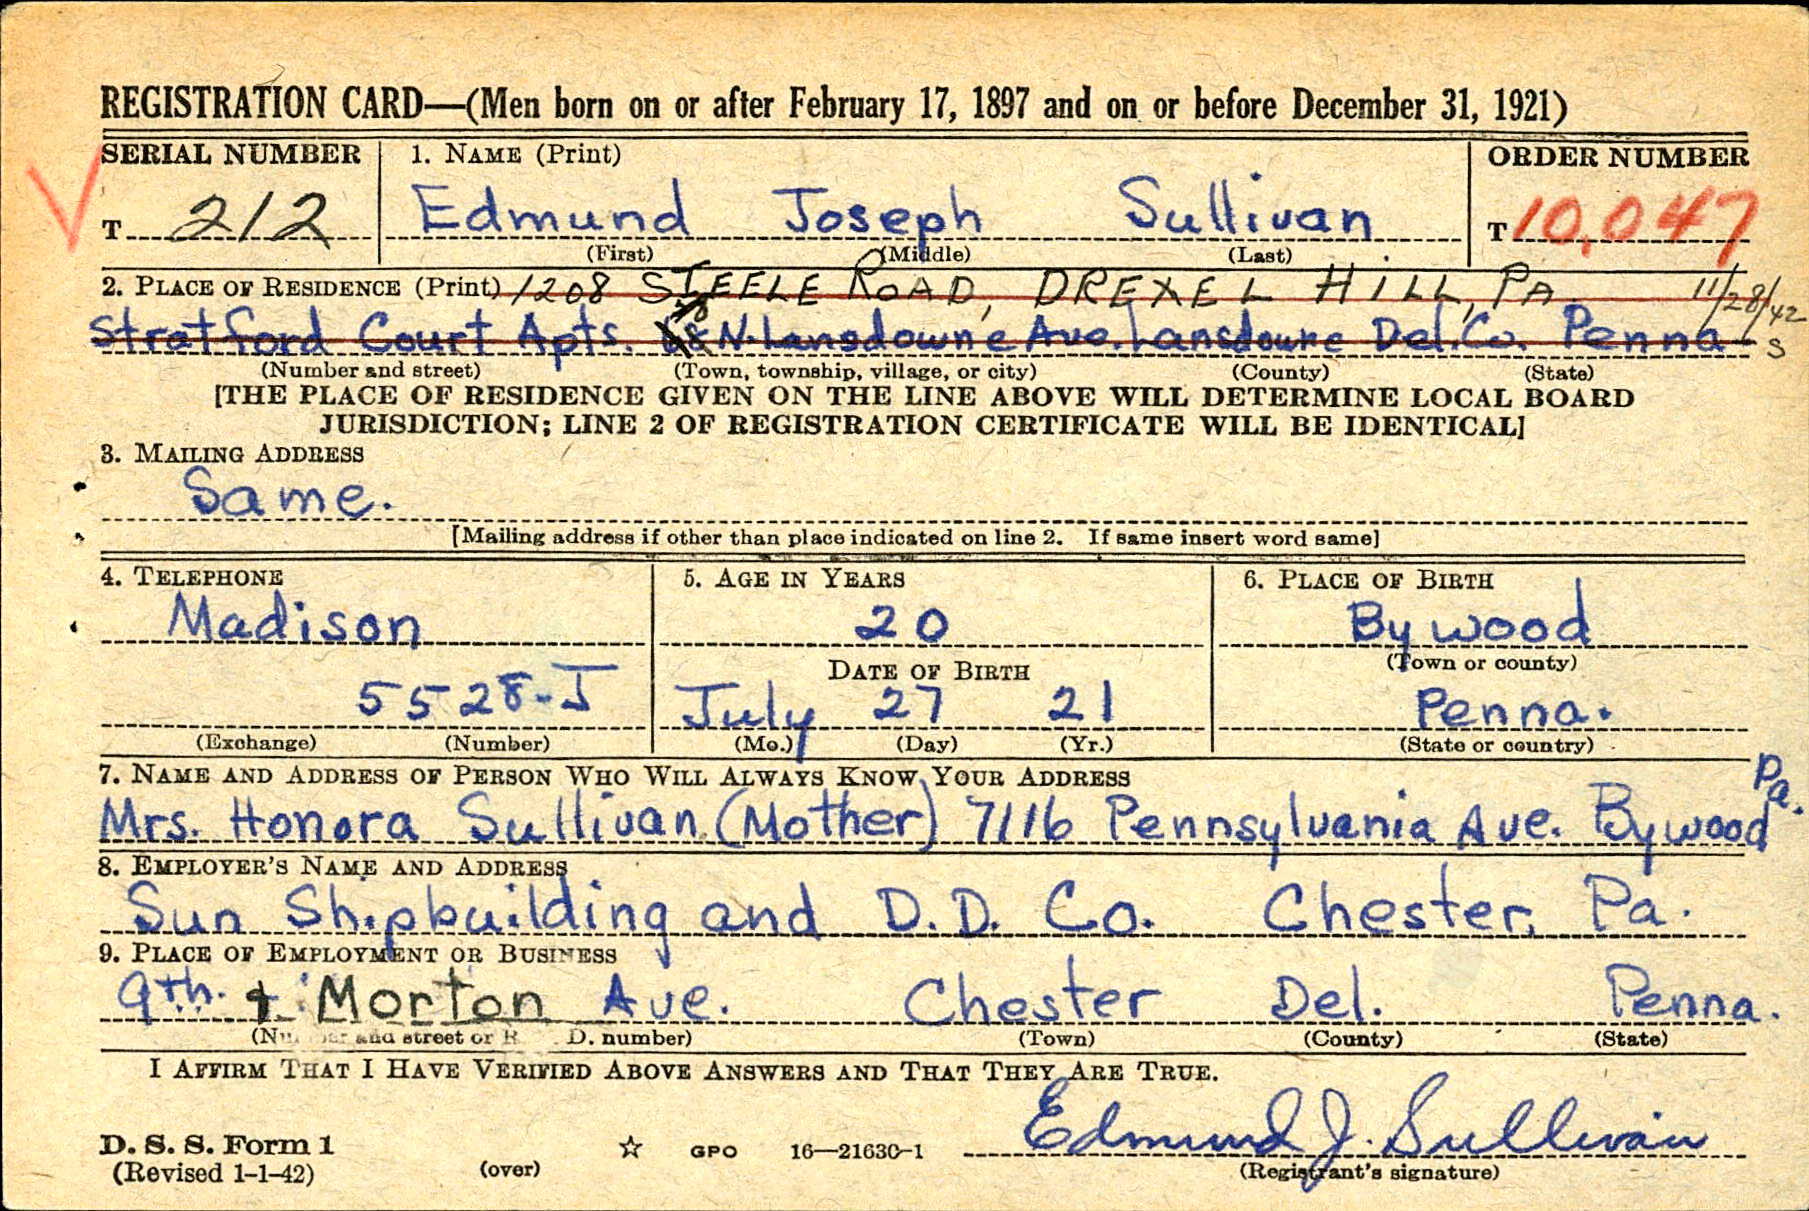 REGISTRATION CARD—(Men born on or after February 17, 1897 and on or before December 31, 1921)
SERIAL NUMBER 1. NAME (Print) ORDER NUMBER
T 212 Edmund Joseph Sullivan T 10,047
(First) (Middle) (Last)
2. PLACE OF RESIDENCE (Print) 1208 STEELE ROAD, DREXEL HILL, PA 11/28/42
Stratford Court Apts. N. Lansdowne Ave. Lansdowne Del. Co. Penna S
(Number and street) (Town, township, village, or city) (County) (State)
[THE PLACE OF RESIDENCE GIVEN ON THE LINE ABOVE WILL DETERMINE LOCAL BOARD
JURISDICTION; LINE 2 OF REGISTRATION CERTIFICATE WILL BE IDENTICAL]
3. MAILING ADDRESS
Same.
[Mailing address if other than place indicated on line 2. If same insert word same]
4. TELEPHONE 5. AGE IN YEARS 6. PLACE OF BIRTH
Madison 20 Bywood
DATE OF BIRTH (Town or county)
5528-J July 27 21 Penna.
(Exchange) (Number) (Mo.) (Day) (Yr.) (State or country)
7. NAME AND ADDRESS OF PERSON WHO WILL ALWAYS KNOW YOUR ADDRESS
Mrs. Honora Sullivan (Mother) 7116 Pennsylvania Ave. Bywood Pa.
8. EMPLOYER'S NAME AND ADDRESS
Sun Shipbuilding and D.D. Co. Chester, Pa.
9. PLACE OF EMPLOYMENT OR BUSINESS
9th. & Morton Ave. Chester Del. Penna.
(Number and street or R. D. number) (Town) (County) (State)
I AFFIRM THAT I HAVE VERIFIED ABOVE ANSWERS AND THAT THEY ARE TRUE.
Edmund J. Sullivan
D. S. S. Form 1 GPO 16—21630-1
(Revised 1-1-42) (over) (Registrant's signature)